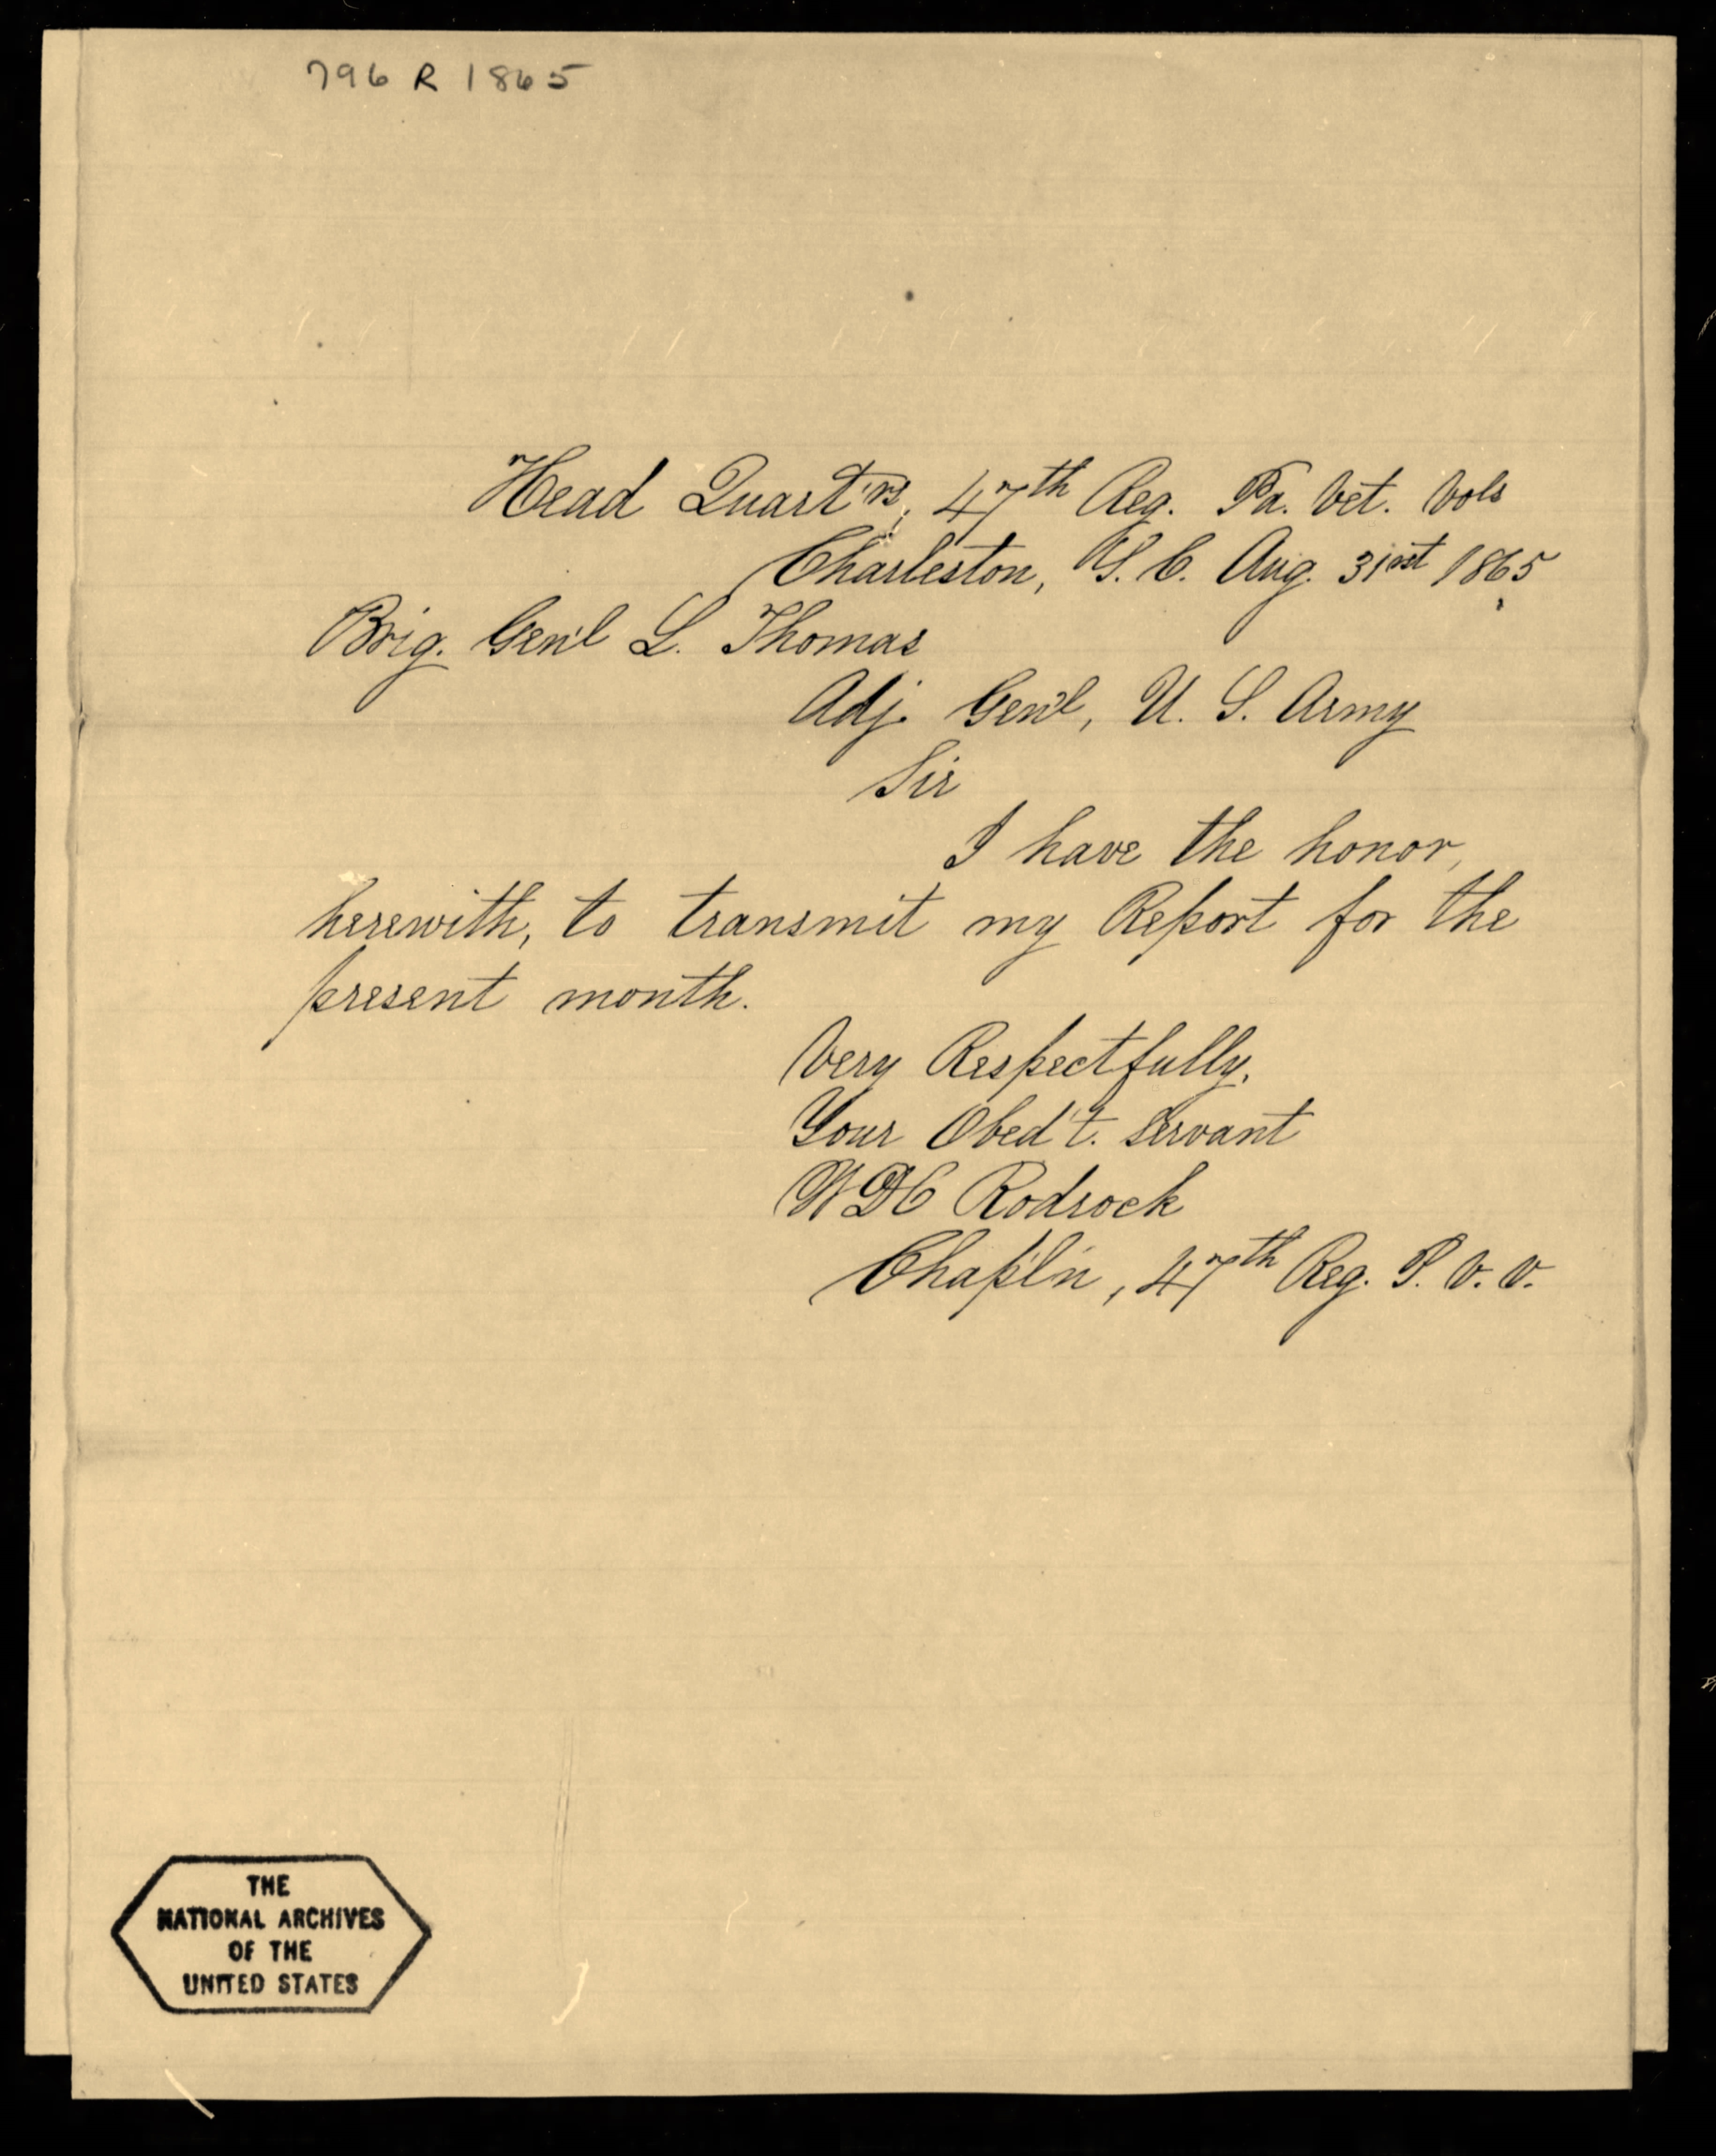 796 R 1865
Head Quart'rs, 47th Reg. Pa. Vet. Vols
Charleston, S. C. Aug. 31st 1865
Brig. Gen'l L. Thomas
Adj. Gen'l, U. S. Army
Sir
I have the honor,
herewith, to transmit my Report for the
present month.
Very Respectfully,
Your Obed't. Servant
W D C Rodrock
Chap'l'n, 47th Reg. P. V. V.
THE
NATIONAL ARCHIVES
OF THE
UNITED STATES